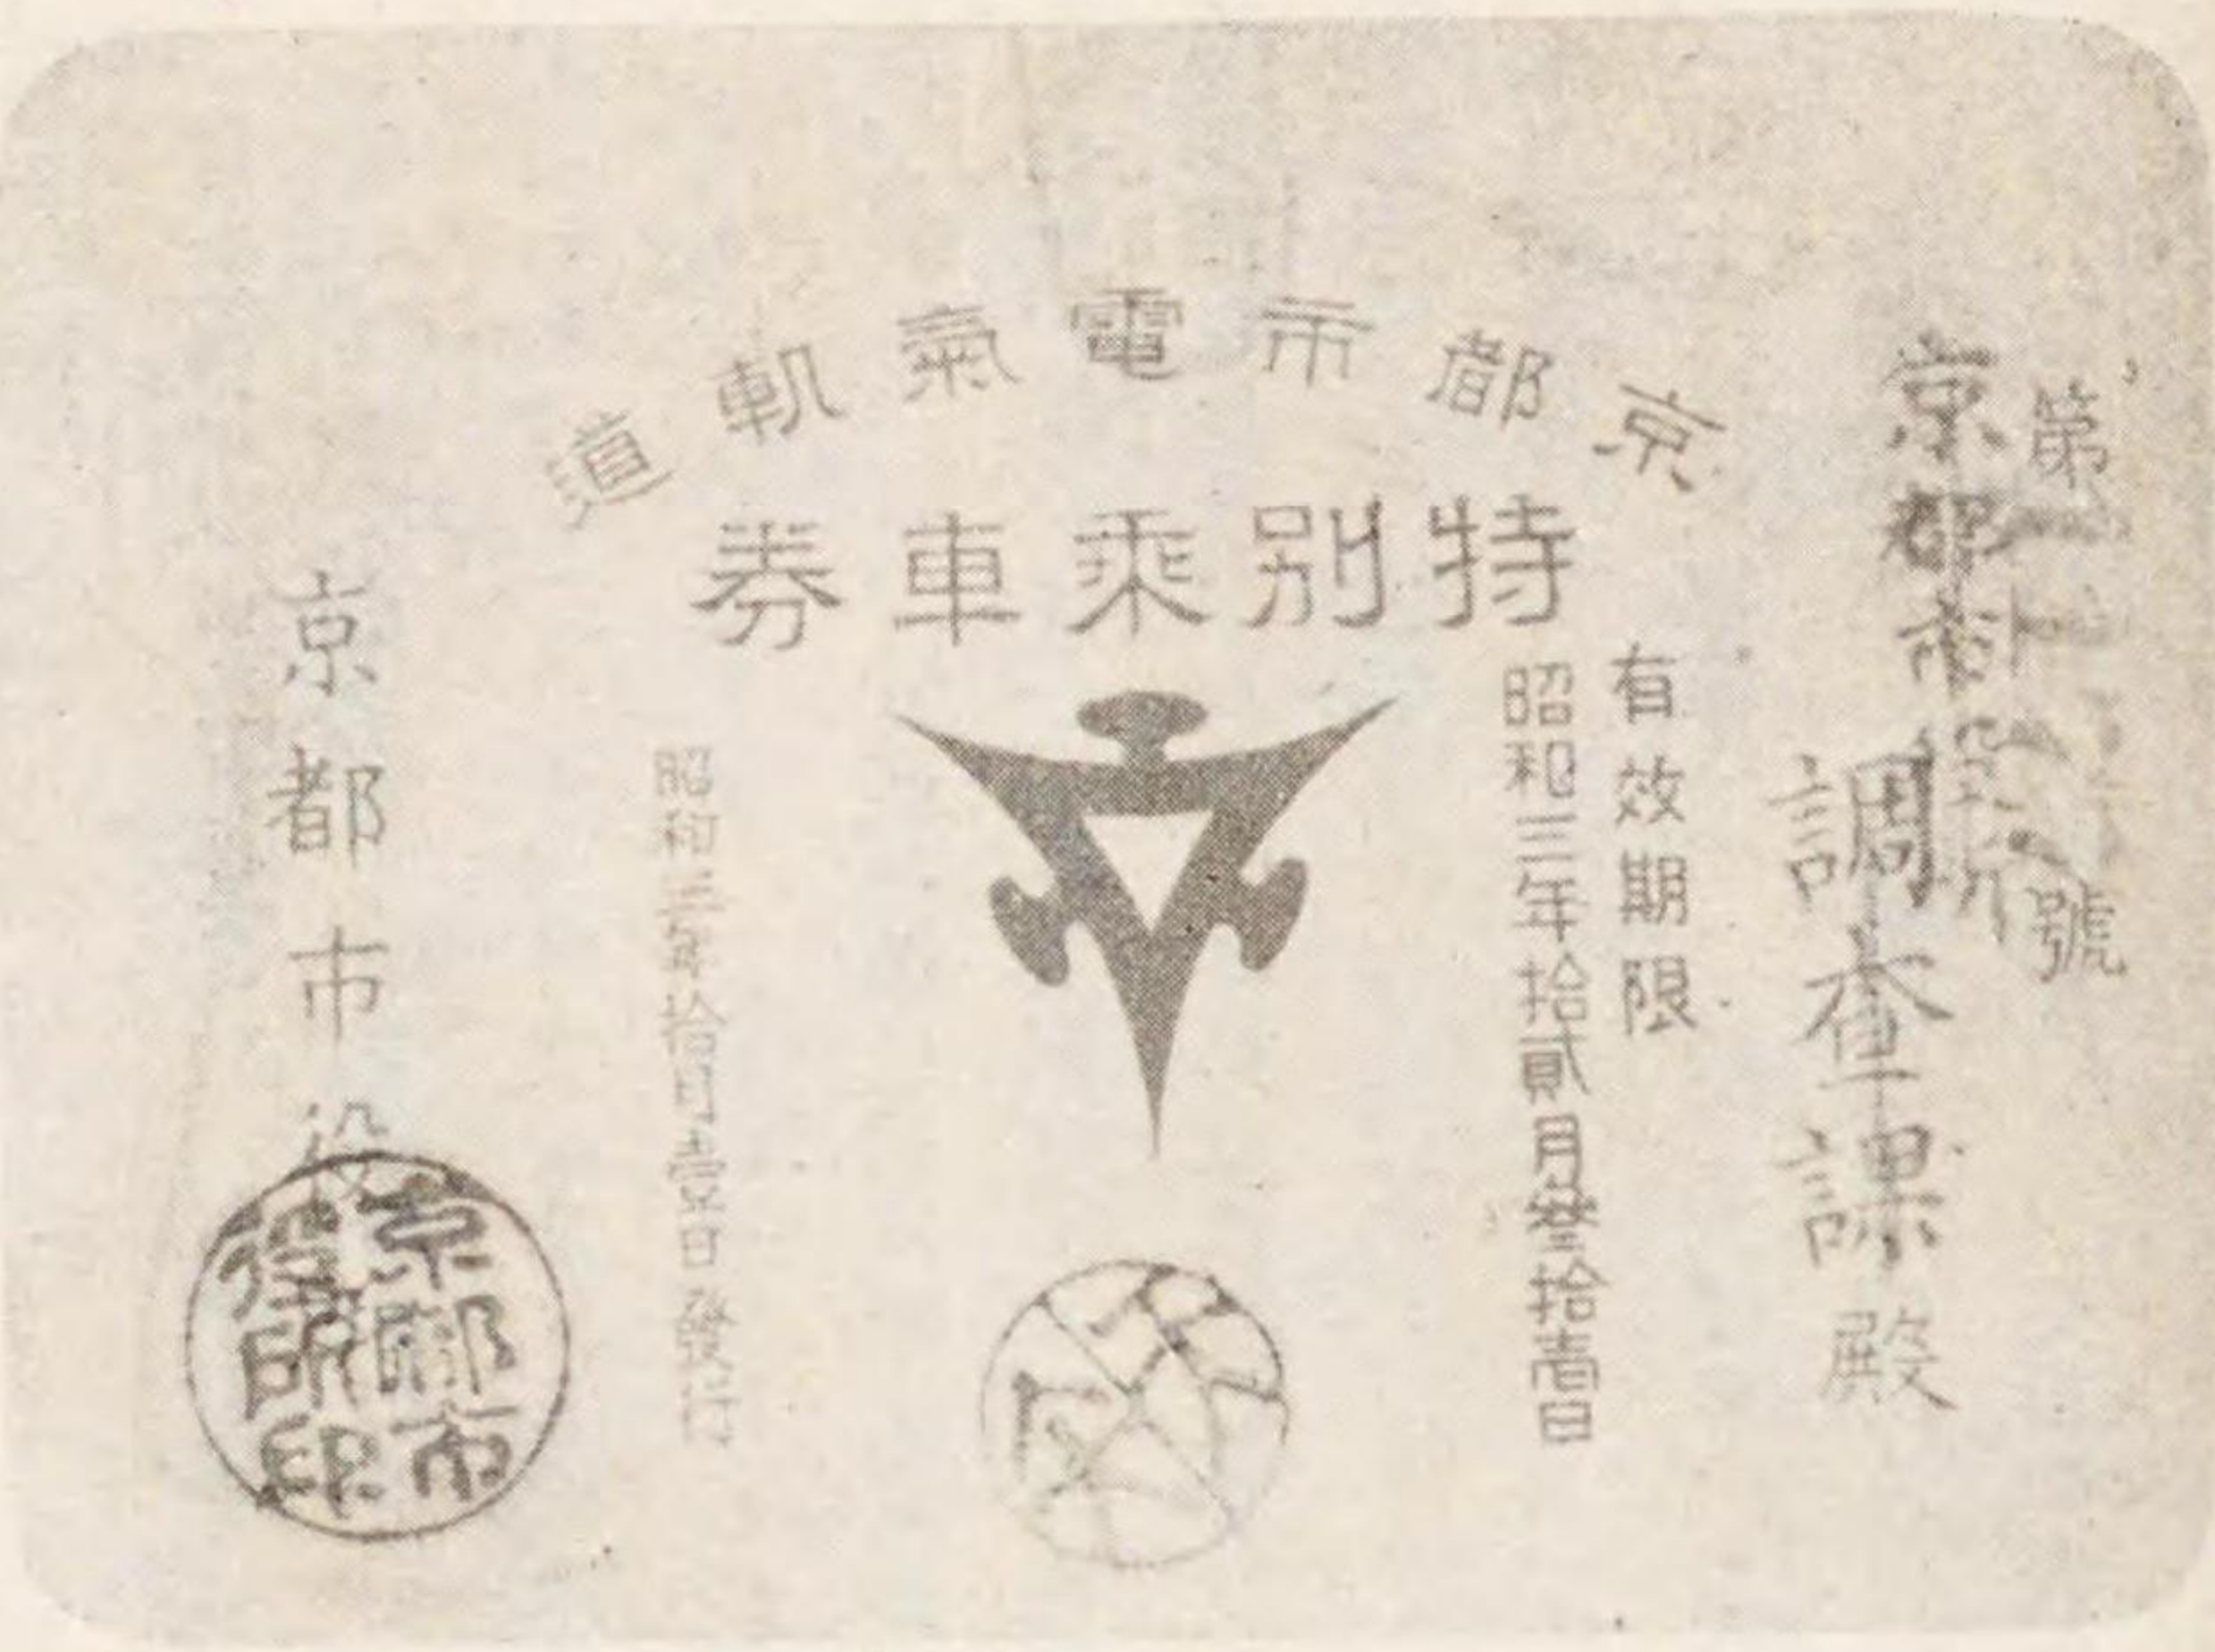 京都市電氣軌道
特別乘車券
第 號
京都市役所
調査課殿
有效期限
昭和三年拾貳月參拾壹日
昭和三年拾月壹日發行
京都市役
京都市
役所印